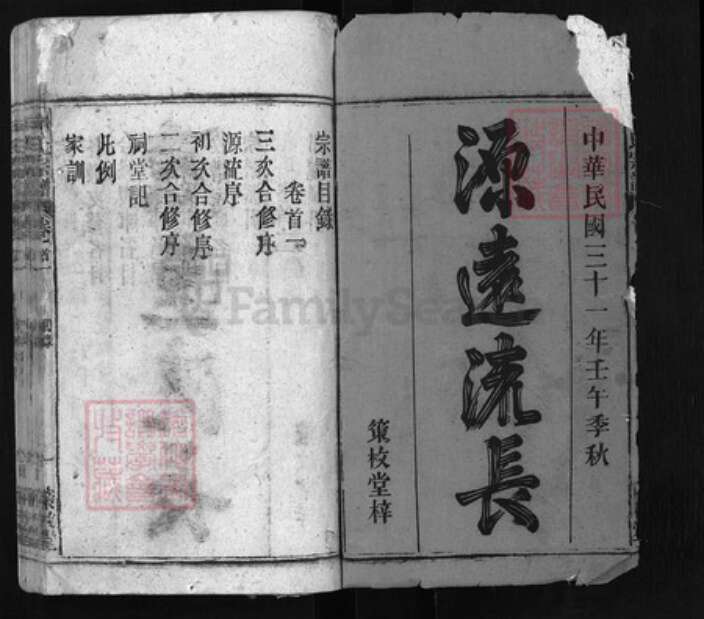 中華民國三十一年壬午季秋
源遠流長
策枚堂梓
宗譜目錄
卷首一
三次合修序
源流序
初次合修序
二次合修序
祠堂記
此例
家訓
FamilySea